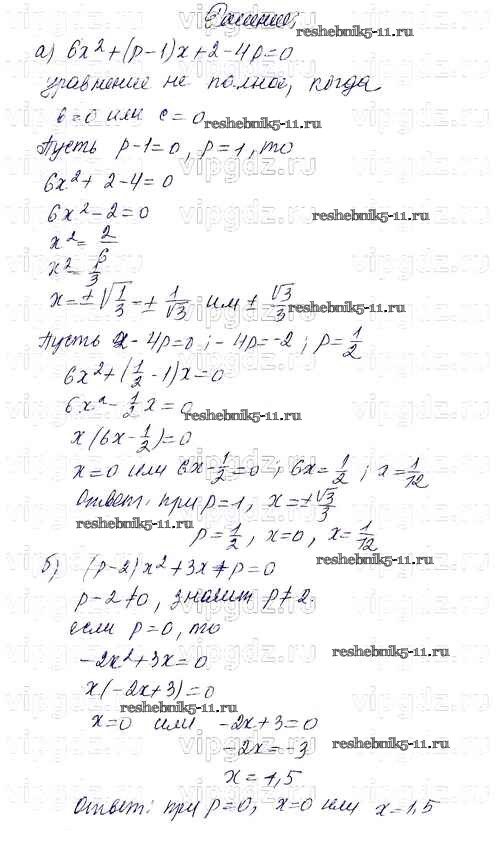 Решение:
а) 6x² + (p-1)x + 2 - 4p = 0
уравнение не полное, когда
b = 0 или c = 0
reshebnik5-11.ru
Пусть p-1=0, p=1, то
6x² + 2 - 4 = 0
6x² - 2 = 0
reshebnik5-11.ru
x² = 2/6
x² = 1/3
x = ±√(1/3) = ± 1/√3 или ± √3/3
reshebnik5-11.ru
Пусть 2 - 4p = 0; -4p = -2; p = 1/2
6x² + (1/2 - 1)x = 0
6x² - 1/2 x = 0
reshebnik5-11.ru
x(6x - 1/2) = 0
x = 0 или 6x - 1/2 = 0; 6x = 1/2; x = 1/12
Ответ: при p = 1, x = ± √3/3
reshebnik5-11.ru
p = 1/2, x = 0, x = 1/12
reshebnik5-11.ru
б) (p-2)x² + 3x + p = 0
p-2≠0, значит p≠2.
если p = 0, то
-2x² + 3x = 0
reshebnik5-11.ru
x(-2x+3) = 0
reshebnik5-11.ru
x = 0 или -2x + 3 = 0
-2x = -3
reshebnik5-11.ru
x = 1,5
Ответ: при p = 0, x = 0 или x = 1,5
vipgdz.ru